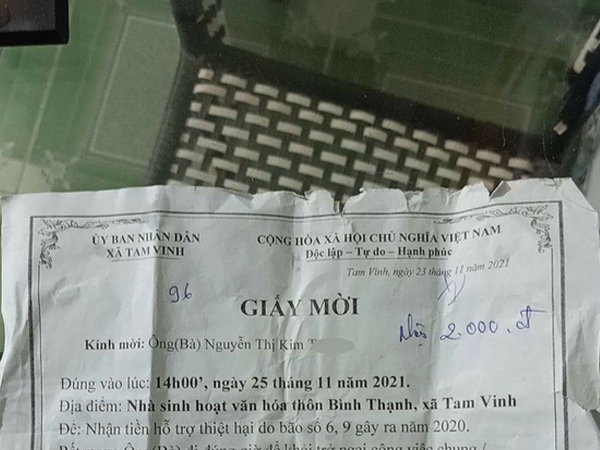 ỦY BAN NHÂN DÂN
XÃ TAM VINH
CỘNG HÒA XÃ HỘI CHỦ NGHĨA VIỆT NAM
Độc lập – Tự do – Hạnh phúc
Tam Vinh, ngày 23 tháng 11 năm 2021
96
GIẤY MỜI
2.000.đ
Kính mời: Ông(Bà) Nguyễn Thị Kim T
Đúng vào lúc: 14h00’, ngày 25 tháng 11 năm 2021.
Địa điểm: Nhà sinh hoạt văn hóa thôn Bình Thạnh, xã Tam Vinh
Đề: Nhận tiền hỗ trợ thiệt hại do bão số 6, 9 gây ra năm 2020.
Ông (Bà) đi đúng giờ để khỏi trở ngại công việc chung./